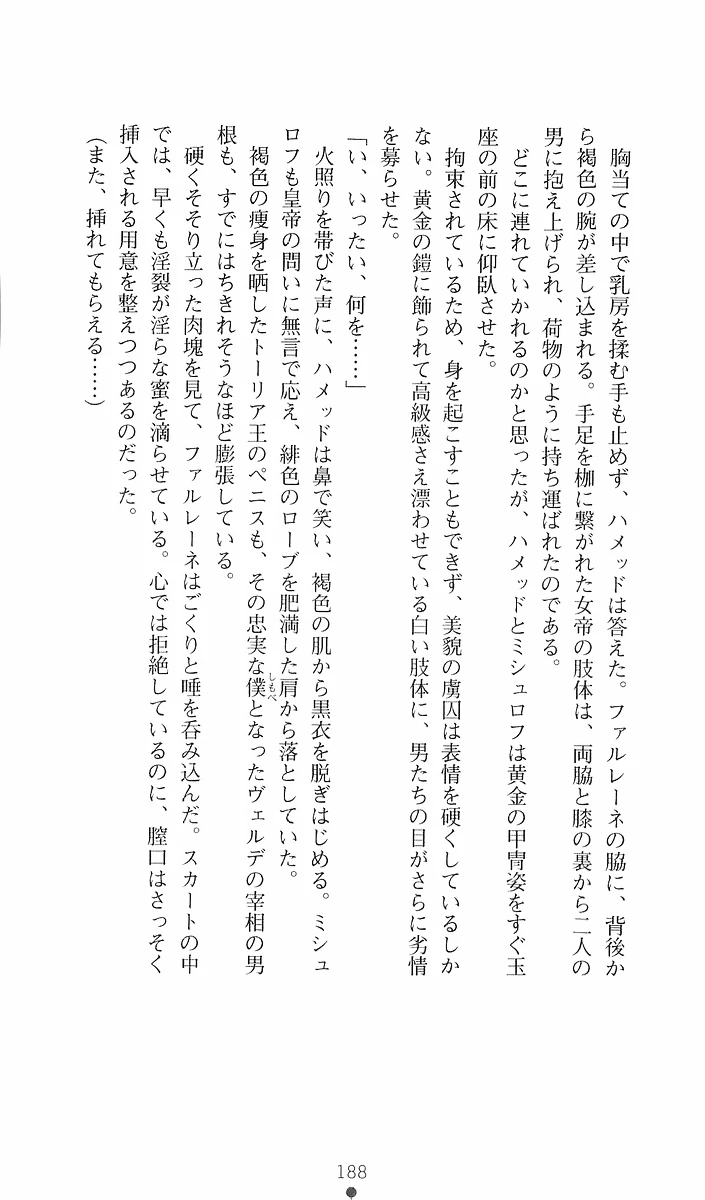 胸当ての中で乳房を揉む手も止めず、ハメッドは答えた。ファルレーネの脇に、背後か
ら褐色の腕が差し込まれる。手足を枷に繋がれた女帝の肢体は、両脇と膝の裏から二人の
男に抱え上げられ、荷物のように持ち運ばれたのである。
どこに連れていかれるのかと思ったが、ハメッドとミシュロフは黄金の甲冑姿をすぐ玉
座の前の床に仰臥させた。
拘束されているため、身を起こすこともできず、美貌の虜囚は表情を硬くしているしか
ない。黄金の鎧に飾られて高級感さえ漂わせている白い肢体に、男たちの目がさらに劣情
を募らせた。
「い、いったい、何を……」
火照りを帯びた声に、ハメッドは鼻で笑い、褐色の肌から黒衣を脱ぎはじめる。ミシュ
ロフも皇帝の問いに無言で応え、緋色のローブを肥満した肩から落としていた。
褐色の痩身を晒したトーリア王のペニスも、その忠実な僕しもべとなったヴェルデの宰相の男
根も、すでにはちきれそうなほど膨張している。
硬くそそり立った肉塊を見て、ファルレーネはごくりと唾を呑み込んだ。スカートの中
では、早くも淫裂が淫らな蜜を滴らせている。心では拒絶しているのに、膣口はさっそく
挿入される用意を整えつつあるのだった。
（また、挿れてもらえる……）
188